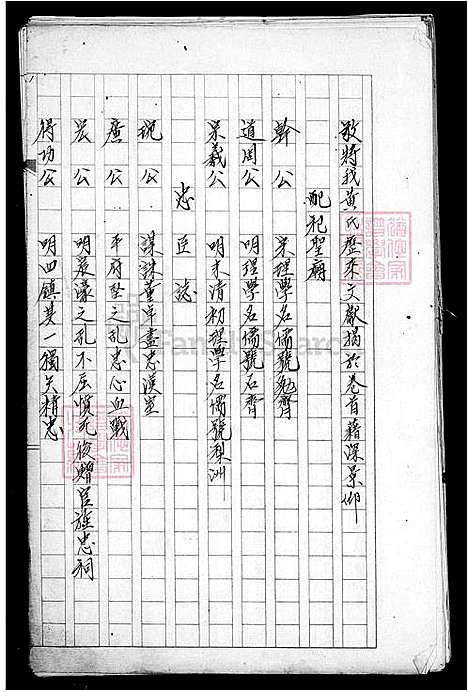 敬將我黃氏歷來文獻揭於卷首藉深景仰
配祀聖廟
幹公 宋理學名儒號勉齊
道周公 明理學名儒號石齊
宗羲公 明末清初理學名儒號梨洲
忠臣誌
琬公 謀誅董卓盡忠漢室
廣公 平府 之亂忠心血戰
宏公 明宸濠之亂不屈憤死後贈官旌忠祠
得功公 明四鎮其一獨矢精忠
FamilySearch